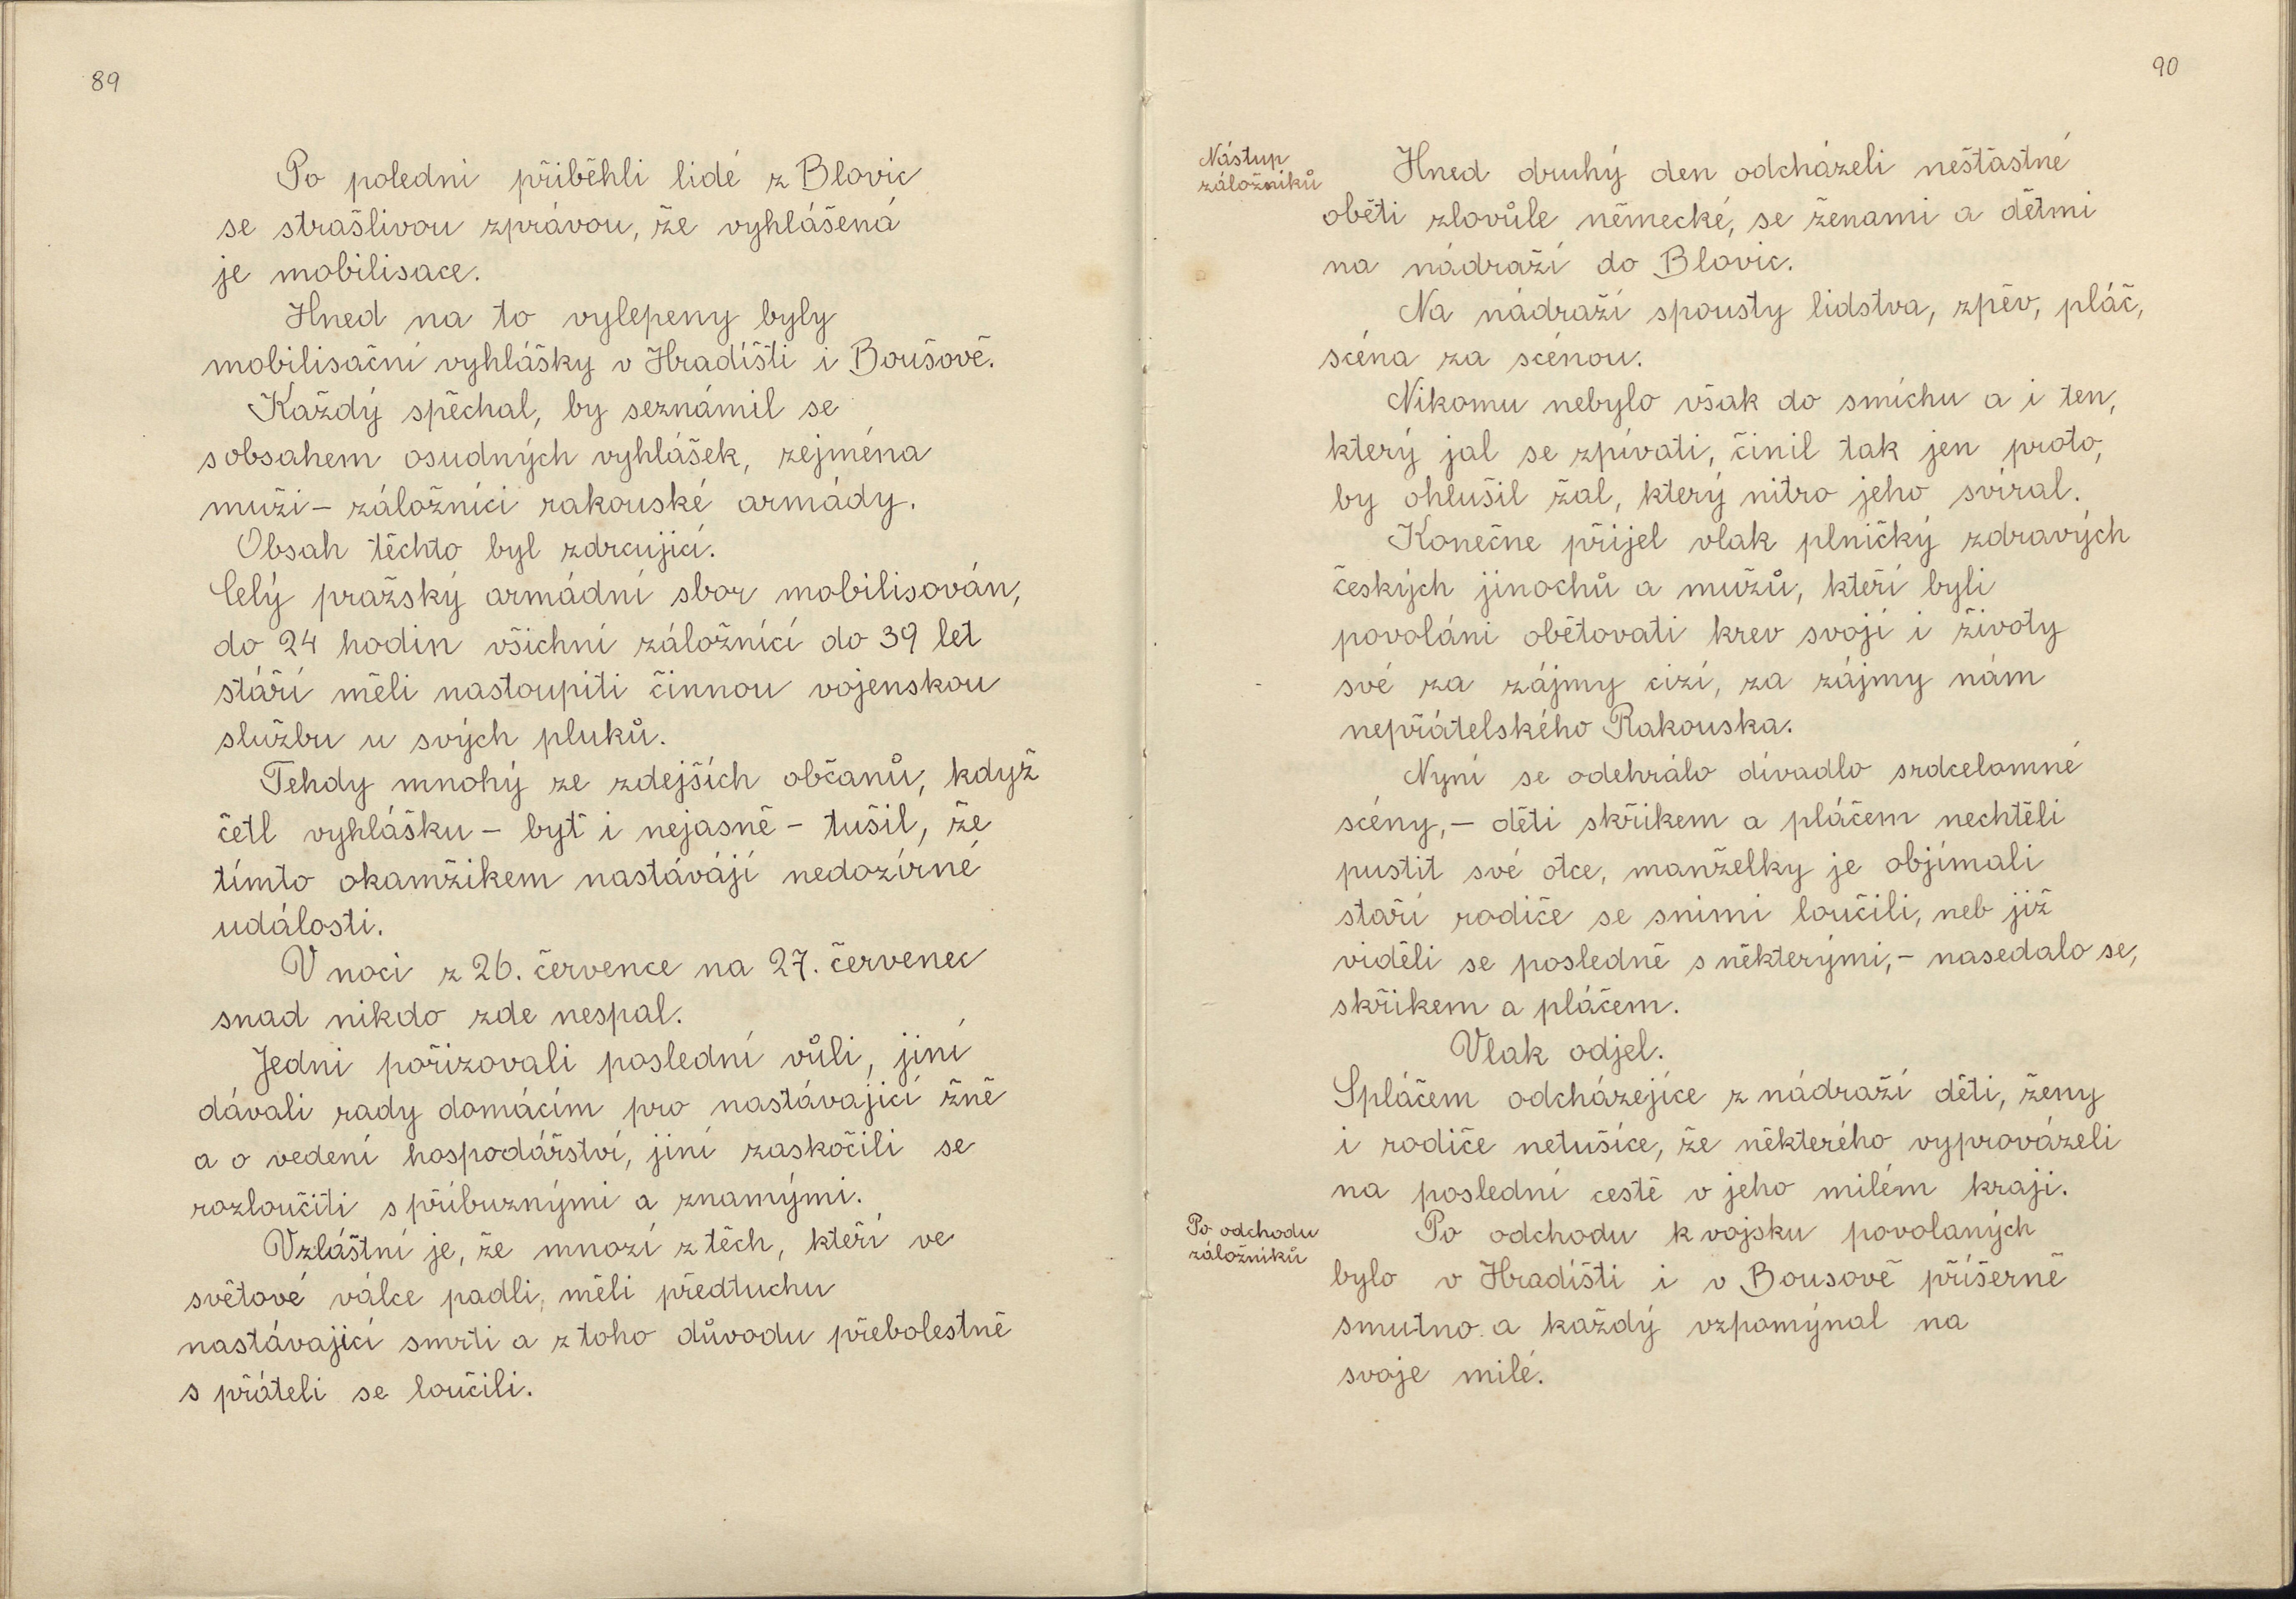 89
Po poledni přiběhli lidé z Blovic
se strašlivou zprávou, že vyhlášená
je mobilisace.
Hned na to vylepeny byly
mobilisační vyhlášky v Hradišti i Boušově.
Každý spěchal, by seznámil se
s obsahem osudných vyhlášek, zejména
muži - záložníci rakouské armády.
Obsah těchto byl zdrcující.
Celý pražský armádní sbor mobilisován,
do 24 hodin všichni záložníci do 39 let
stáří měli nastoupiti činnou vojenskou
službu u svých pluků.
Tehdy mnohý ze zdejších občanů, když
četl vyhlášku - byť i nejasně - tušil, že
tímto okamžikem nastávájí nedozírné
události.
V noci z 26. července na 27. červenec
snad nikdo zde nespal.
Jedni pořizovali poslední vůli, jiní
dávali rady domácím pro nastávající žně
a o vedení hospodářství, jiní zaskočili se
rozloučiti s příbuznými a znamými.
Vzláštní je, že mnozí z těch, kteří ve
světové válce padli, měli předtuchu
nastávající smrti a z toho důvodu přebolestně
s přáteli se loučili.
90
Nástup
záložníků
Hned druhý den odcházeli nešťastné
oběti zlovůle německé, se ženami a dětmi
na nádraží do Blovic.
Na nádraží spousty lidstva, zpěv, pláč,
scéna za scénou.
Nikomu nebylo však do smíchu a i ten,
který jal se zpívati, činil tak jen proto,
by ohlušil žal, který nitro jeho svíral.
Konečne přijel vlak plničký zdravých
českých jinochů a mužů, kteří byli
povoláni obětovati krev svoji i životy
své za zájmy cizí, za zájmy nám
nepřátelského Rakouska.
Nyní se odehrálo divadlo srdcelomné
scény, - děti skřikem a pláčem nechtěli
pustit své otce, manželky je objímali
staří rodiče se snimi loučili, neb již
viděli se posledně s některými, - nasedalo se,
skřikem a pláčem.
Vlak odjel.
Spláčem odcházejíce z nádraží děti, ženy
i rodiče netušíce, že některého vyprovázeli
na poslední cestě v jeho milém kraji.
Po odchodu
záložníků
Po odchodu k vojsku povolaných
bylo v Hradišti i v Bousově příšerně
smutno a každý vzpomýnal na
svoje milé.